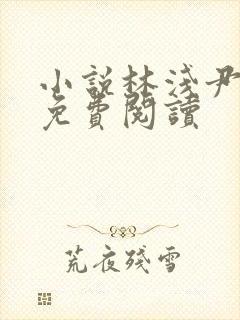 小說林淺尹
免費閱讀
荒夜殘雪